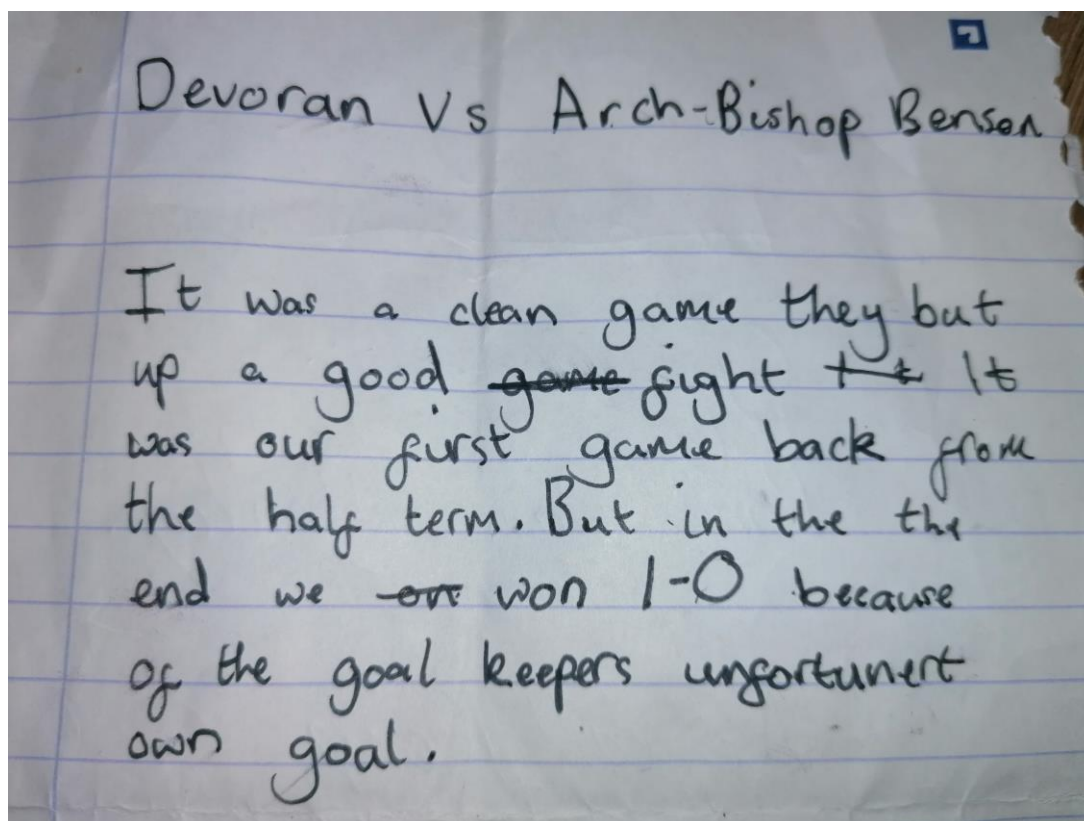 Devoran Vs Arch-Bishop Benson
It was a clean game they but
up a good game fight It It
was our first game back from
the half term. But in the the
end we on won 1-0 because
of the goal keepers unfortunert
own goal.